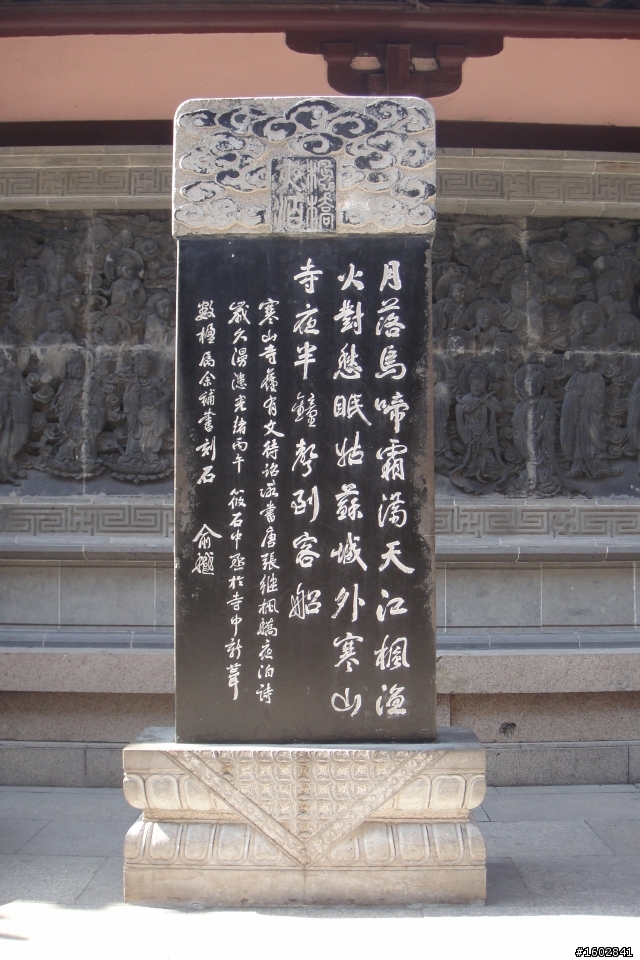 楓橋
夜泊
月落烏啼霜滿天江楓漁
火對愁眠姑蘇城外寒山
寺夜半鐘聲到客船
寒山寺舊有文待詔所書唐張繼楓橋夜泊詩
歲久漫漶光緒丙午筱石中丞於寺中新葺
數楹屬余補書刻石 俞樾
#1602841